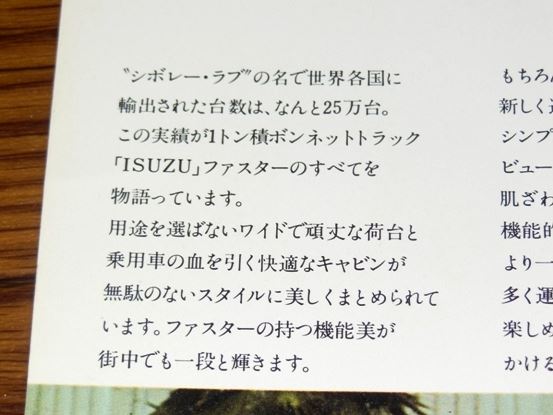 〝シボレー・ラブ〞の名で世界各国に
輸出された台数は、なんと25万台。
この実績が1トン積ボンネットトラック
「ISUZU」ファスターのすべてを
物語っています。
用途を選ばないワイドで頑丈な荷台と
乗用車の血を引く快適なキャビンが
無駄のないスタイルに美しくまとめられて
います。ファスターの持つ機能美が
街中でも一段と輝きます。
もちろ
新しく
シンプ
ビュー
肌ざわ
機能的
より一
多く運
楽しめ
かける